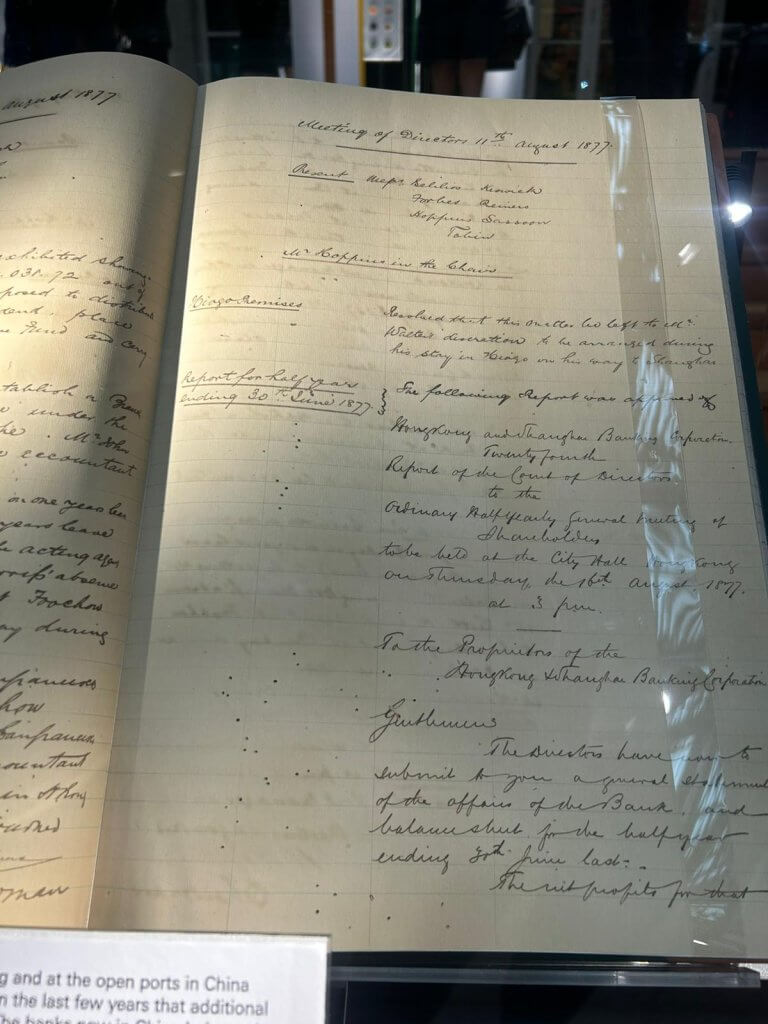 August 1877
exhibited showing
031.72 out of
posed to distribute
dend, place
ve Fund and carry
stablish a
under the
he. Mr John
accountant
in one years lease
years lease
acting agent
absence
Foochow
ay during
how
ountant
Meeting of Directors 11th August 1877.
Present Messrs Belilios Keswick
Forbes Reiners
Hoppius Sassoon
Tobin
Mr Hoppius in the Chair
Hiogo Premises
Resolved that this matter be left to Mr
Walter's discretion to be arranged during
his stay in Hiogo on his way to Shanghai
Report for half year
ending 30th June 1877.
The following Report was approved of
HongKong and Shanghai Banking Corporation.
Twentyfourth
Report of the Court of Directors
to the
Ordinary Half Yearly General Meeting of
Shareholders
to be held at the City Hall HongKong
on Thursday, the 16th August 1877.
at 3 p.m.
To the Proprietors of the
HongKong & Shanghai Banking Corporation
Gentlemen
The Directors have now to
submit to you a general statement
of the affairs of the Bank, and
balance sheet for the half year
ending 30th June last.
The net profits for that
g and at the open ports in China
n the last few years that additional